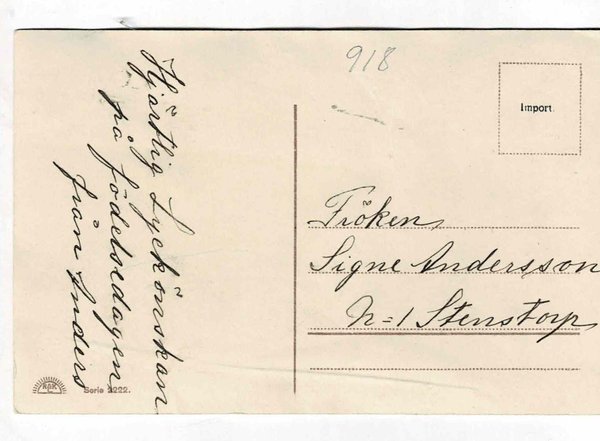 918
Import.
Hjärtlig Lyckönskan
på födelsedagen
från Anders
Fröken
Signe Andersson
N=1 Stenstorp
Serie 2222.